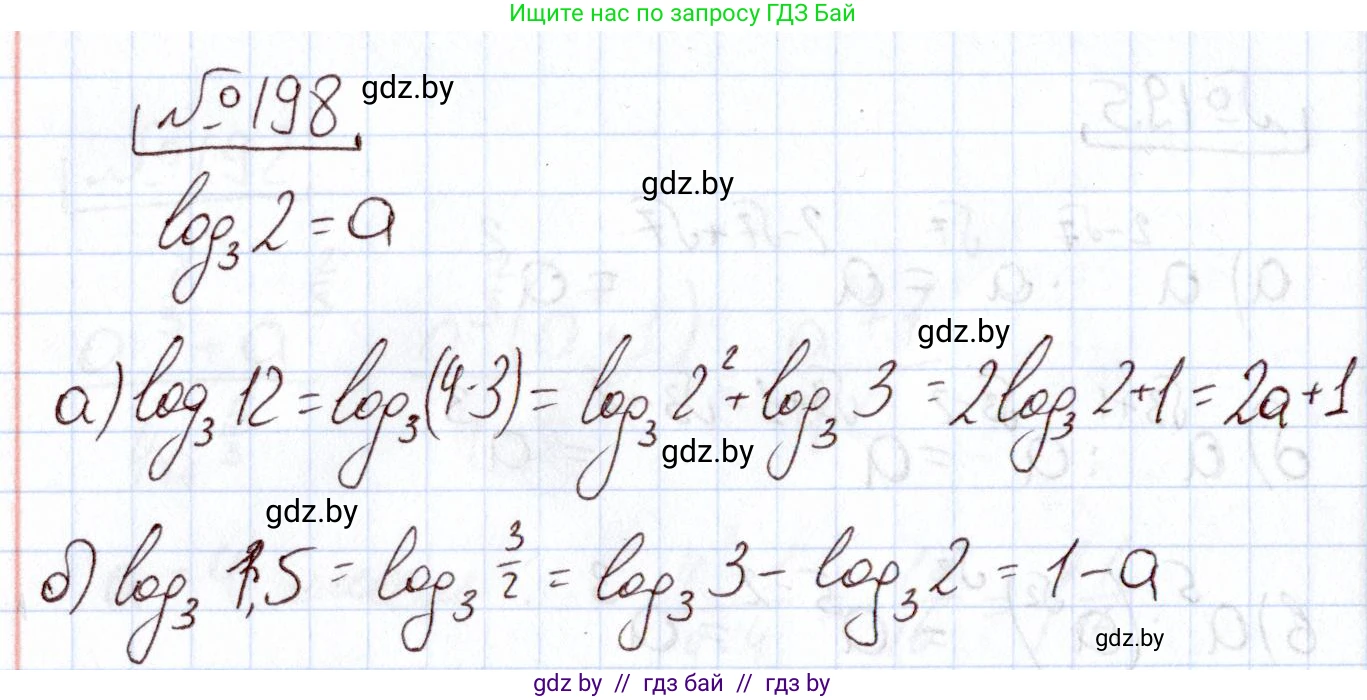 Ищите нас по запросу ГДЗ Бай
№198 gdz.by
gdz.by
log₃ 2 = a
gdz.by
а) log₃ 12 = log₃(4·3) = log₃ 2² + log₃ 3 = 2log₃ 2+1 = 2a+1
gdz.by
gdz.by
б) log₃ 1,5 = log₃ 3/2 = log₃ 3 - log₃ 2 = 1-a
gdz.by
gdz.by // гдз бай // гдз by